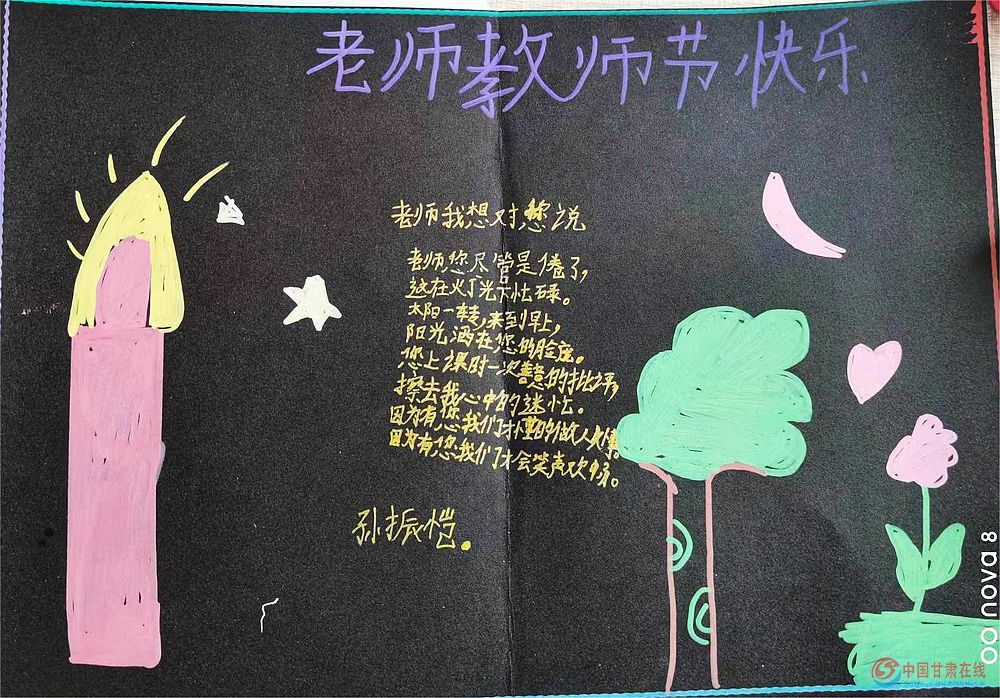 老师教师节快乐
老师我想对您说
老师您尽管是倦了,
这在灯光下忙碌。
太阳一转走,来到早上,
阳光洒在您的脸庞。
您上课时一次善意的批评,
擦去我心中的迷忙。
因为有您我们才懂的做人处事。
因为有您我们才会笑声欢畅。
孙振恺。
nova 8
中国甘肃在线